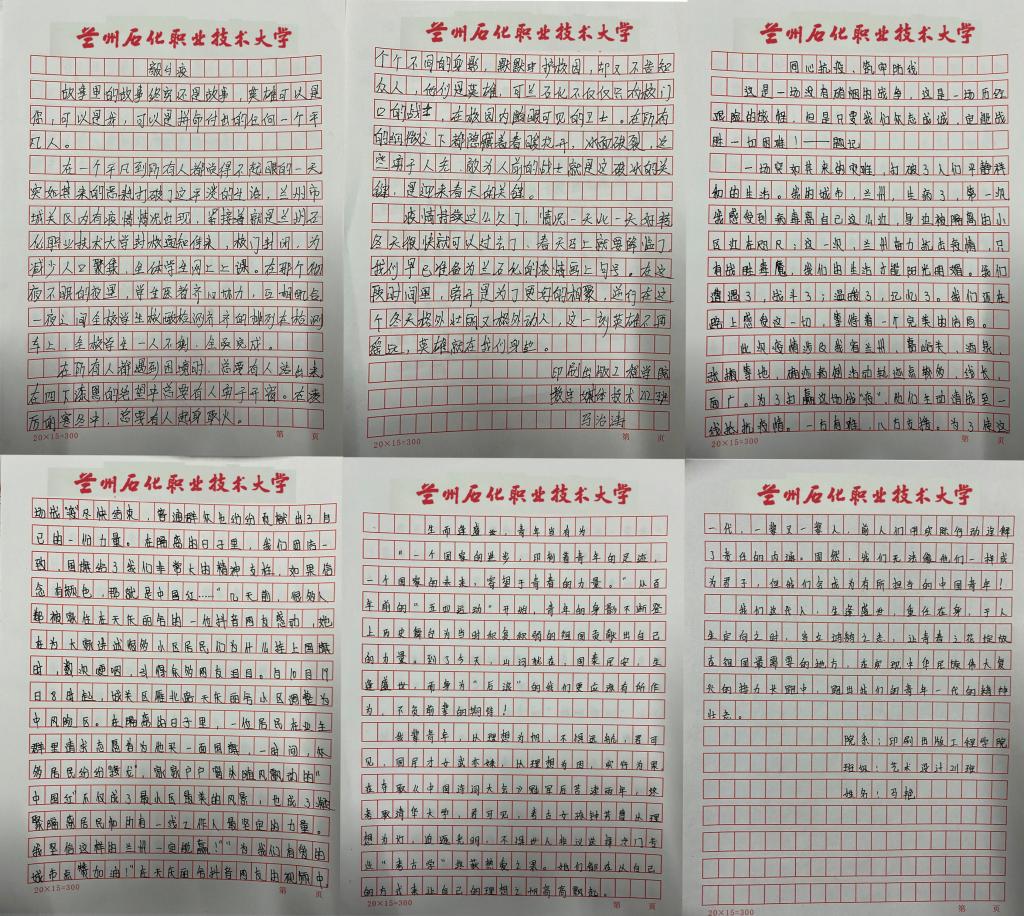 兰州石化职业技术大学
故事里的故事终究还是故事，英雄可以是
你，可以是我，可以是拼命付出的任何一个平
凡人。
在一个平凡到所有人都觉得不起眼的一天
突如其来的 打破了这平淡的生活，兰州市
城关区内有疫情情况出现，紧接着就是兰州石
化职业技术大学封校通知传来，校门封闭，为
减少人口聚集，全体学生网上上课。在那个彻
夜不眠的夜里，学生医者齐心协力，互相配合
一夜之间全校学生核酸检测
车上，全校学生一人不剩，全
在所有人都遇到困境时，总要有人站出来
在四下漆黑的绝望中总要有人勇于开窗。在凌
厉的寒冬中，总要有人
20×15=300
第 页
兰州石化职业技术大学
个个不同的身影，默默守护校园，却又不告知
众人，他们是英雄，可兰石化不仅仅只有校门
口的战士，在校园内随眼可见的卫士。在所有
的细微之下都隐藏着春暖花开，冰面破裂，这
些勇于人先，敢为人前的战士就是这破冰的关
键，是迎来春天的关键。
疫情持续这么久了，情况一天比一天好转
冬天很快就可以过去了，春天马上就要降临了
我们早已准备为兰石化的疫情画上句号。在这
段时间里，离开是为了更好的相聚，逆行在这
个冬天格外壮丽又格外动人，这一刻英雄不再
遥远，英雄就在我们身边。
印刷出版工程学院
数字媒体技术 班
马治涛
20×15=300
第 页
兰州石化职业技术大学
同心抗疫、筑牢防线
这是一场没有硝烟的战争，这是一场历经
艰险的战程，但是只要我们众志成城，定能战
胜一切困难！——题记
一场突如其来的灾难，打破了人们平静祥
和的生活。我的城市，兰州，生病了，第一次
我感受到病毒离自己这么近，身边被隔离的小
区近在咫尺；这一次，兰州奋力抗击疫情，只
有战胜病魔，我们的生活才能阳光明媚。我们
遭遇了，战斗了；温暖了，记忆了。我们正在
路上感受这一切，等待着一个完美的结局。
此次疫情涉及我省兰州，嘉峪关，酒泉，
张掖等地，确诊病例活动轨迹点数多，线长，
面广。为了打赢这场战“疫”，他们主动请战至一
线抗击疫情。一方有难，八方支援。为了使这
20×15=300
第 页
兰州石化职业技术大学
场战“疫”尽快结束，普通群众也纷纷贡献出了自
己的一份力量。在隔离的日子里，我们团结一
致，国旗给了我们非常大的精神支柱。如果信
念有颜色，那就是中国红……”几天前，很多人
都被家住在天庆丽舟的一位抖音网友感动，她
在为大家讲述隔离小区居民们为什么挂上国旗
时，数次哽咽，引得众多网友泪目。自10月19
日8时起，城关区雁北路天庆丽舟小区调整为
中风险区。在隔离的日子里，一位居民在业主
群里请求志愿者为他买一面国旗，一时间，众
多居民纷纷“接龙”，家家户户窗外随风飘动的“
中国红”不仅成了最小区最美的风景，也成了凝
聚隔离居民和所有一线工作人最坚定的力量。
“我坚信这样的兰州一定能赢！”“为我们有爱的
城市点赞加油！”在天庆丽舟抖音网友的视频中，
20×15=300
第 页
兰州石化职业技术大学
生而逢盛世，青年当有为
“一个国家的进步，印刻着青年的足迹，
一个国家的未来，寄望于青春的力量。”从百
年前的“五四运动”开始，青年的身影不断登
上历史舞台为当时积贫积弱的祖国贡献出自己
的力量。到了今天，山河犹在，国泰民安，生
逢盛世，而身为“后浪”的我们更应该有所作
为，不负前辈的期待！
我辈青年，从理想为帆，不惧远航，君可
见，国民才女武亦姝，从理想为因，实行为果
在夺取《中国诗词大会》冠军后苦读两年，终
考取清华大学，君可见，考古女孩钟芳蓉从理
想为灯，追逐光明，不惧世人非议选择冷门专
业“考古学”终获热爱之果。她们都在从自己
的方式来让自己的理想之帆高高飘起。
20×15=300
第 页
兰州石化职业技术大学
一代，一辈又一辈人，前人们用实际行动诠释
了责任的内涵。固然，我们无法像他们一样成
为君子，但我们会成为有所担当的中国青年！
我们这代人，生逢盛世，重任在身，于人
生定向之时，当立鸿鹄之志，让青春之花绽放
在祖国最需要的地方，在实现中华民族伟大复
兴的接力长跑中，跑出我们的青年一代的精神
状态。
院系：印刷出版工程学院
班级：艺术设计21班
姓名：马艳
20×15=300
第 页